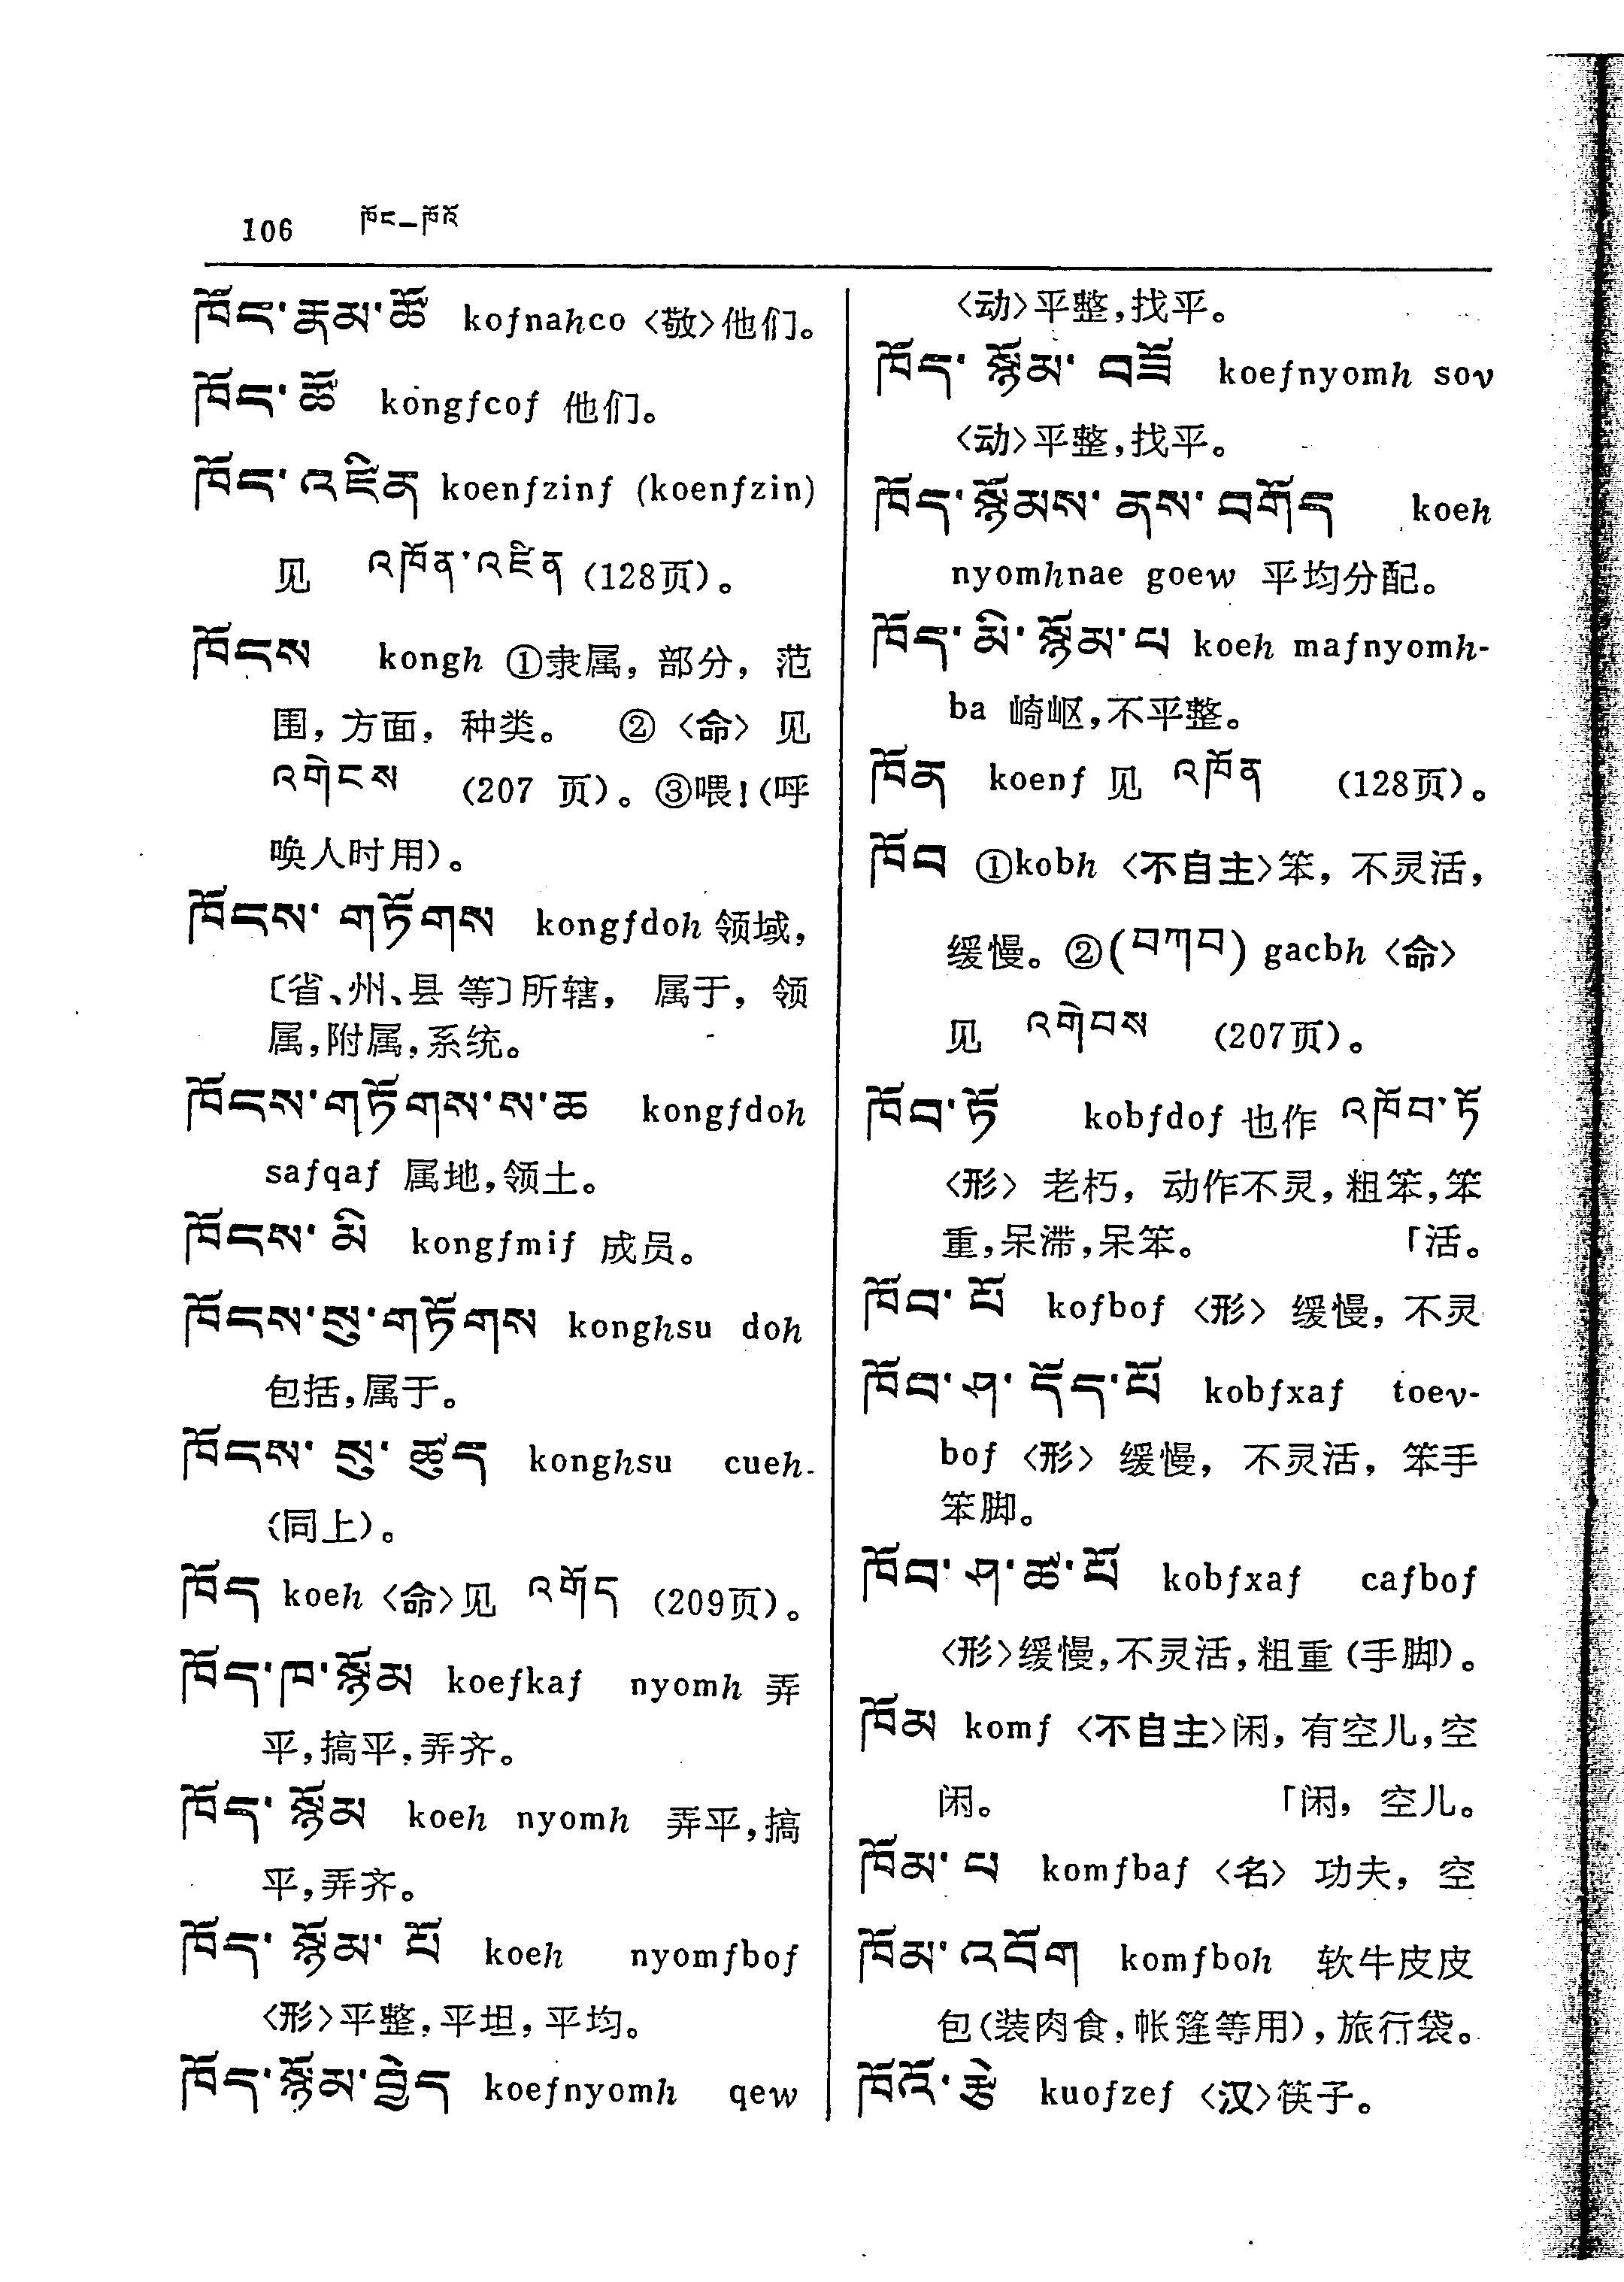 106 ཁོང–ཁོའོ
ཁོང་རྣམ་ཚོ kofnahco 〈敬〉他们。
ཁོང་ཚོ kongfcof 他们。
ཁོང་འཛིན koenfzinf (koenfzin)
见 འཁོན་འཛིན (128页)。
ཁོངས kongh ①隶属，部分，范
围，方面，种类。 ②〈命〉见
འགེངས (207 页)。③喂!(呼
唤人时用)。
ཁོངས་གཏོགས kongfdoh 领域，
〔省、州、县 等〕所辖， 属于，领
属，附属，系统。
ཁོངས་གཏོགས་ས་ཆ kongfdoh
safqaf 属地，领土。
ཁོངས་མི kongfmif 成员。
ཁོངས་སུ་གཏོགས konghsu doh
包括，属于。
ཁོངས་སུ་ཚུད konghsu cueh
(同上)。
ཁོད koeh 〈命〉见 འགོད (209页)。
ཁོད་ཁ་སྙོམ koefkaf nyomh 弄
平，搞平，弄齐。
ཁོད་སྙོམ koeh nyomh 弄平，搞
平，弄齐。
ཁོད་སྙོམ་པོ koeh nyomfbof
〈形〉平整，平坦，平均。
ཁོད་སྙོམ་བྱེད koefnyomh qew
〈动〉平整，找平。
ཁོད་སྙོམ་བཟོ koefnyomh sov
〈动〉平整，找平。
ཁོད་སྙོམས་ནས་བགོད koeh
nyomhnae goew 平均分配。
ཁོད་མི་སྙོམ་པ koeh mafnyomh-
ba 崎岖，不平整。
ཁོན koenf 见 འཁོན (128页)。
ཁོབ ①kobh 〈不自主〉笨，不灵活，
缓慢。②(བཀབ) gacbh 〈命〉
见 འགེབས (207页)。
ཁོབ་ཏོ kobfdof 也作 འཁོབ་ཏོ
〈形〉 老朽，动作不灵，粗笨，笨
重，呆滞，呆笨。 「活。
ཁོབ་པོ kofbof 〈形〉 缓慢，不灵
ཁོབ་ཤ་དོད་པོ kobfxaf toev-
bof 〈形〉 缓慢， 不灵活，笨手
笨脚。
ཁོབ་ཤ་ཚ་པོ kobfxaf cafbof
〈形〉缓慢，不灵活，粗重(手脚)。
ཁོམ komf 〈不自主〉闲，有空儿，空
闲。 「闲，空儿。
ཁོམ་པ komfbaf 〈名〉 功夫，空
ཁོམ་འབོག komfboh 软牛皮皮
包(装肉食，帐篷等用)，旅行袋。
ཁོའོ་རྩེ kuofzef 〈汉〉筷子。